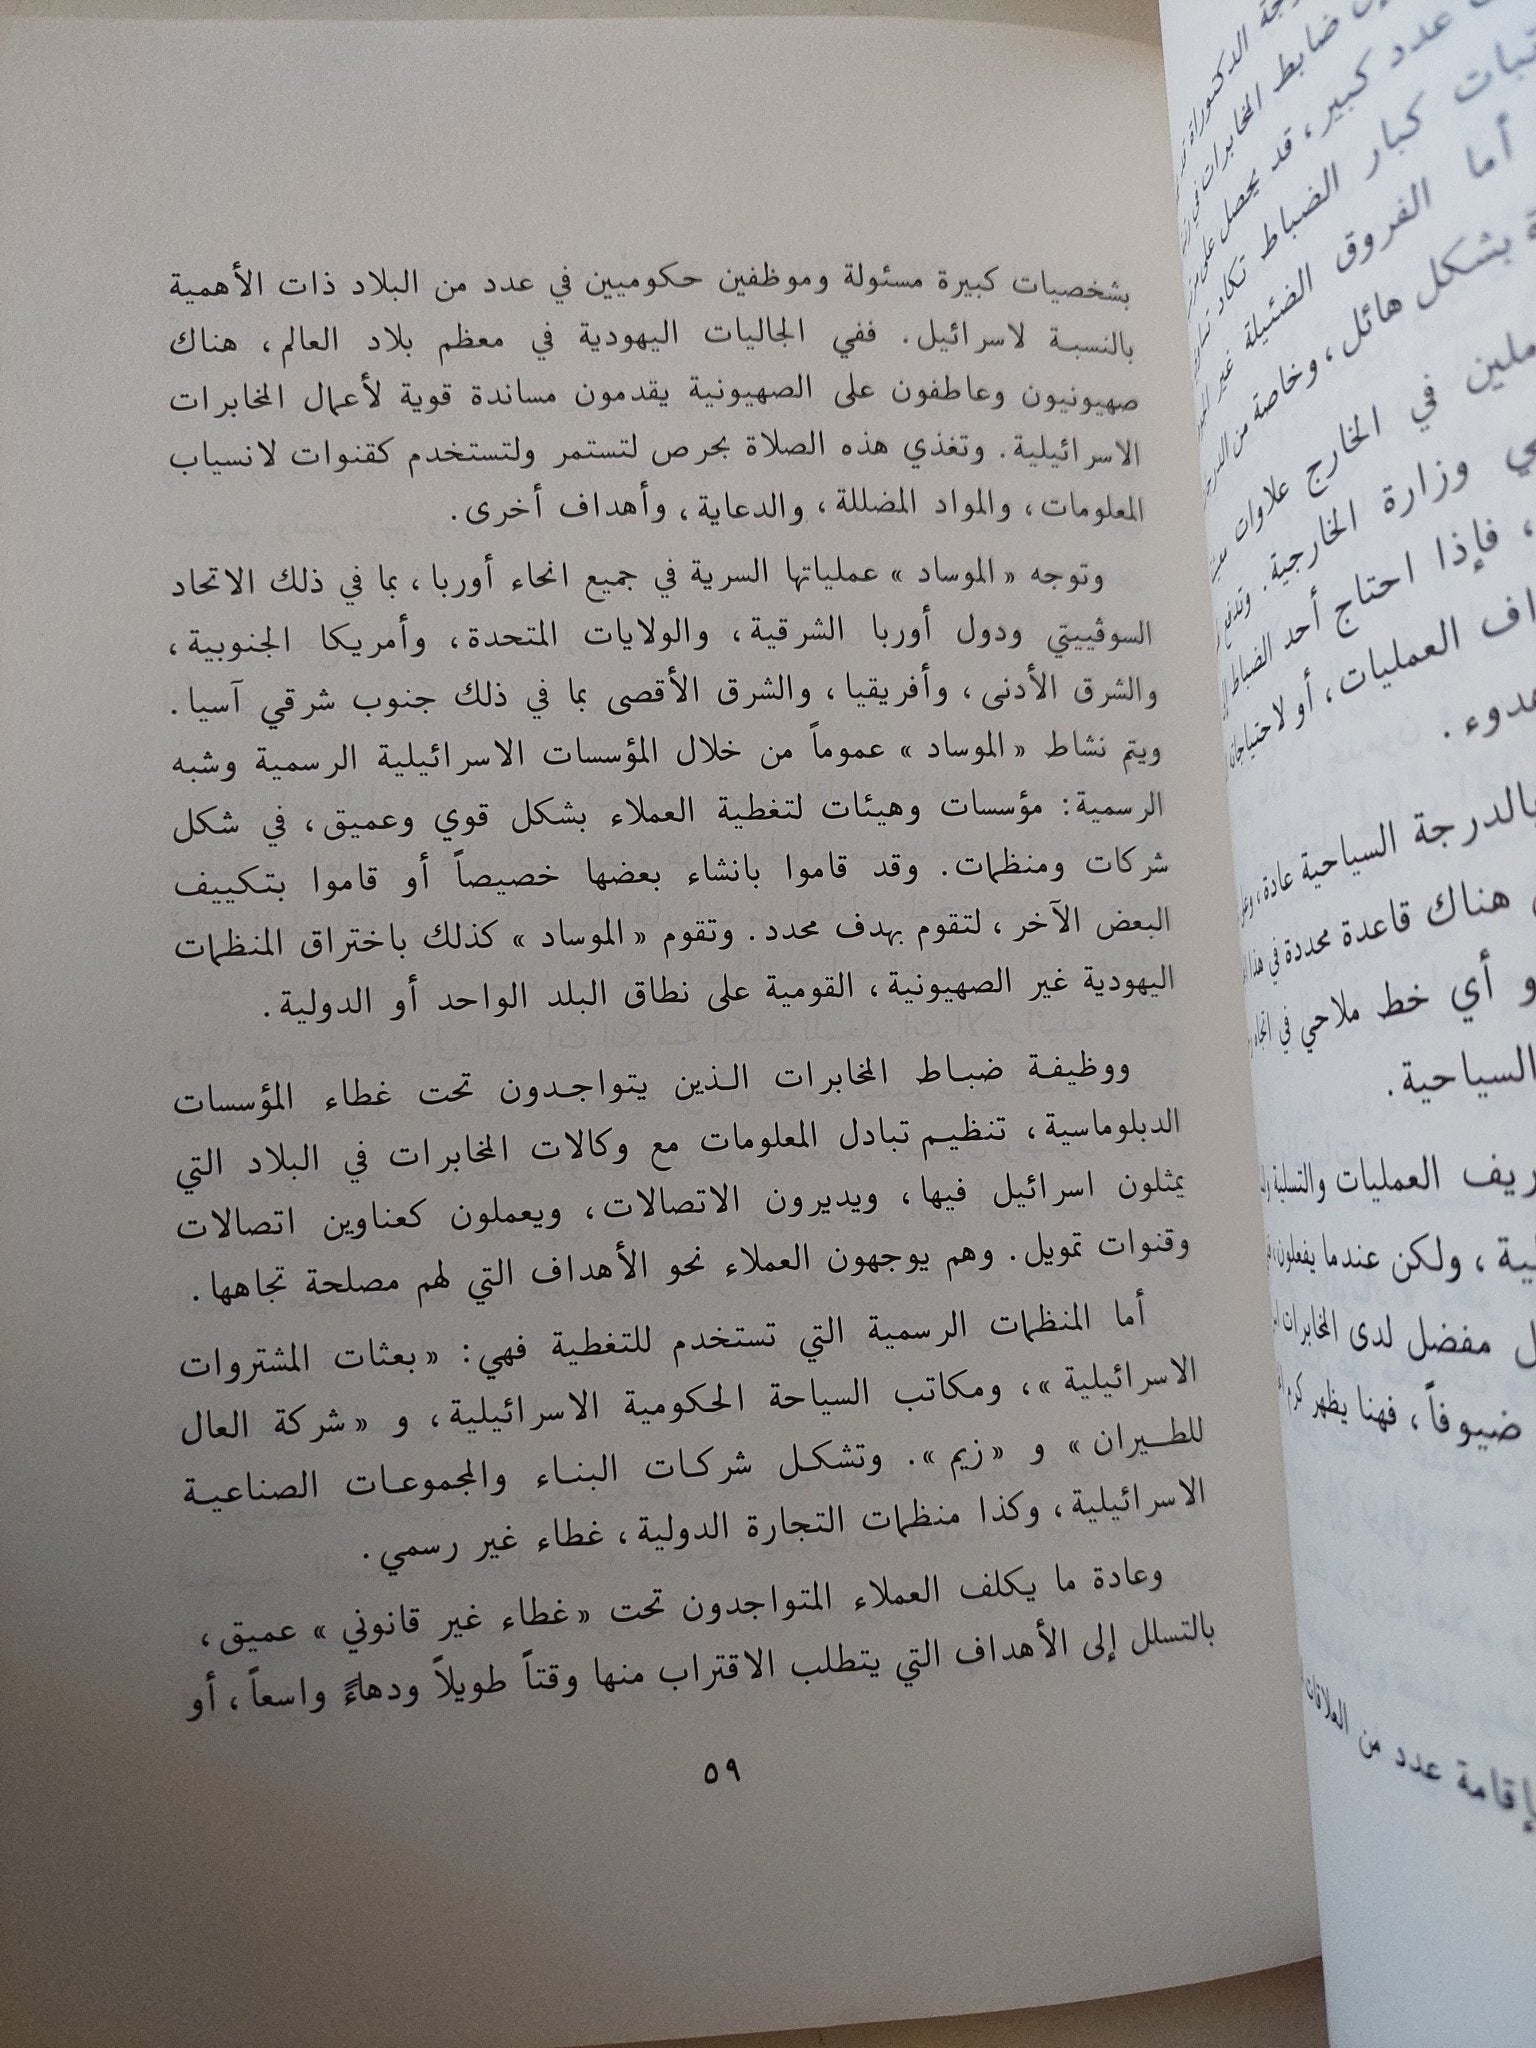 بشخصيات كبيرة مسئولة وموظفين حكوميين في عدد من البلاد ذات الأهمية
بالنسبة لاسرائيل. ففي الجاليات اليهودية في معظم بلاد العالم، هناك
صهيونيون وعاطفون على الصهيونية يقدمون مساندة قوية لأعمال المخابرات
الاسرائيلية. وتغذي هذه الصلاة بحرص لتستمر ولتستخدم كقنوات لانسياب
المعلومات، والمواد المضللة، والدعاية، وأهداف أخرى.
وتوجه «الموساد» عملياتها السرية في جميع انحاء أوربا، بما في ذلك الاتحاد
السوڤييتي ودول أوربا الشرقية، والولايات المتحدة، وأمريكا الجنوبية،
والشرق الأدنى، وأفريقيا، والشرق الأقصى بما في ذلك جنوب شرقي آسيا.
ويتم نشاط «الموساد» عموماً من خلال المؤسسات الاسرائيلية الرسمية وشبه
الرسمية: مؤسسات وهيئات لتغطية العملاء بشكل قوي وعميق، في شكل
شركات ومنظمات. وقد قاموا بانشاء بعضها خصيصاً أو قاموا بتكييف
البعض الآخر، لتقوم بهدف محدد. وتقوم «الموساد» كذلك باختراق المنظمات
اليهودية غير الصهيونية، القومية على نطاق البلد الواحد أو الدولية.
ووظيفة ضباط المخابرات الذين يتواجدون تحت غطاء المؤسسات
الدبلوماسية، تنظيم تبادل المعلومات مع وكالات المخابرات في البلاد التي
يمثلون اسرائيل فيها، ويديرون الاتصالات، ويعملون كعناوين اتصالات
وقنوات تمويل. وهم يوجهون العملاء نحو الأهداف التي لهم مصلحة تجاهها.
أما المنظمات الرسمية التي تستخدم للتغطية فهي: «بعثات المشتروات
الاسرائيلية»، ومكاتب السياحة الحكومية الاسرائيلية، و «شركة العال
للطيران» و «زيم». وتشكل شركات البناء والمجموعات الصناعية
الاسرائيلية، وكذا منظمات التجارة الدولية، غطاء غير رسمي.
وعادة ما يكلف العملاء المتواجدون تحت «غطاء غير قانوني» عميق،
بالتسلل إلى الأهداف التي يتطلب الاقتراب منها وقتاً طويلاً ودهاءً واسعاً، أو
٥٩
ضابط المخابرات في
عدد كبير، قد يحصل على
كبار الضباط تكاد
أما الفروق الضئيلة غير
بشكل هائل، وخاصة من
في الخارج علاوات
وزارة الخارجية. وتدفع
، فإذا احتاج أحد الضباط
العمليات، أو لاحتياجات
بالدرجة السياحية عادة،
هناك قاعدة محددة في هذا
أي خط ملاحي في اتجاه
السياحية.
العمليات والتسلية
، ولكن عندما يفعلون،
مفضل لدى المخابرات
ضيوفاً، فهنا يظهر كرم
بإقامة عدد من العلاقات